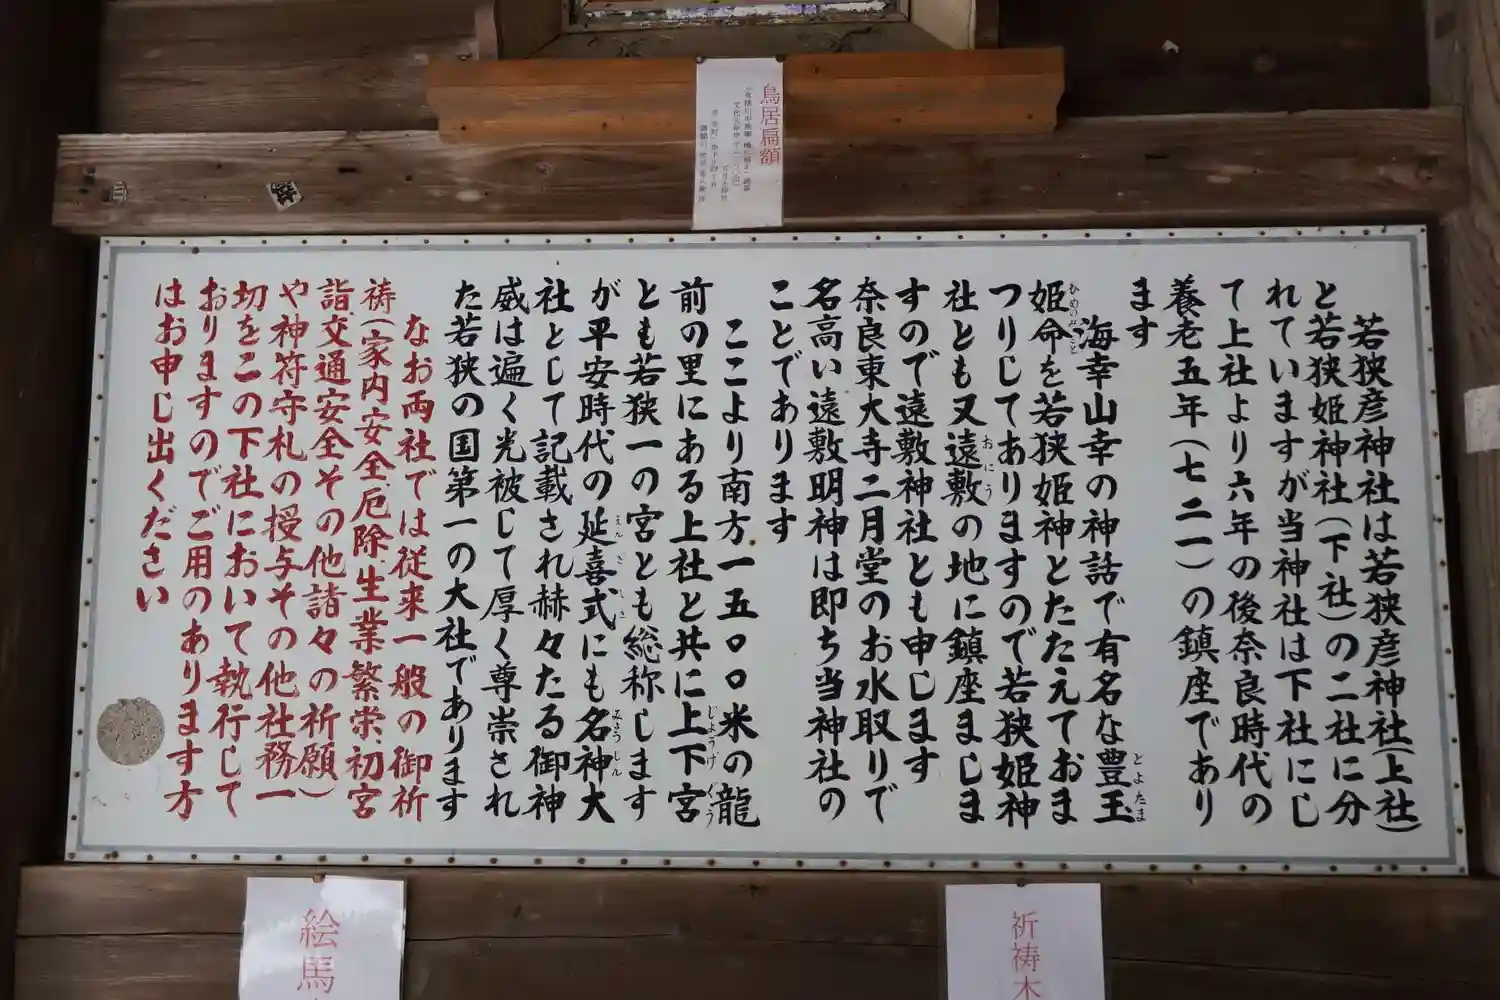 鳥居扁額
若狭彦神社は若狭彦神社(上社)
と若狭姫神社(下社)の二社に分
れていますが当神社は下社にし
て上社より六年の後奈良時代の
養老五年(七二一)の鎮座であり
ます
海幸山幸の神話で有名な豊玉
姫命を若狭姫神とたたえておま
つりしてありますので若狭姫神
社とも又遠敷の地に鎮座ましま
すので遠敷神社とも申します
奈良東大寺二月堂のお水取りで
名高い遠敷明神は即ち当神社の
ことであります
ここより南方一五〇〇米の龍
前の里にある上社と共に上下宮
とも若狭一の宮とも総称します
が平安時代の延喜式にも名神大
社として記載され赫々たる御神
威は遍く光被して厚く尊崇され
た若狭の国第一の大社であります
なお両社では従来一般の御祈
祷(家内安全、厄除、生業繁栄、初宮
詣、交通安全その他諸々の祈願)
や神符守札の授与その他社務一
切をこの下社において執行して
おりますのでご用のあります方
はお申し出ください
とよたま
ひめのみこと
おにう
じようげぐう
えんぎしき
みようじん
祈祷木
絵馬